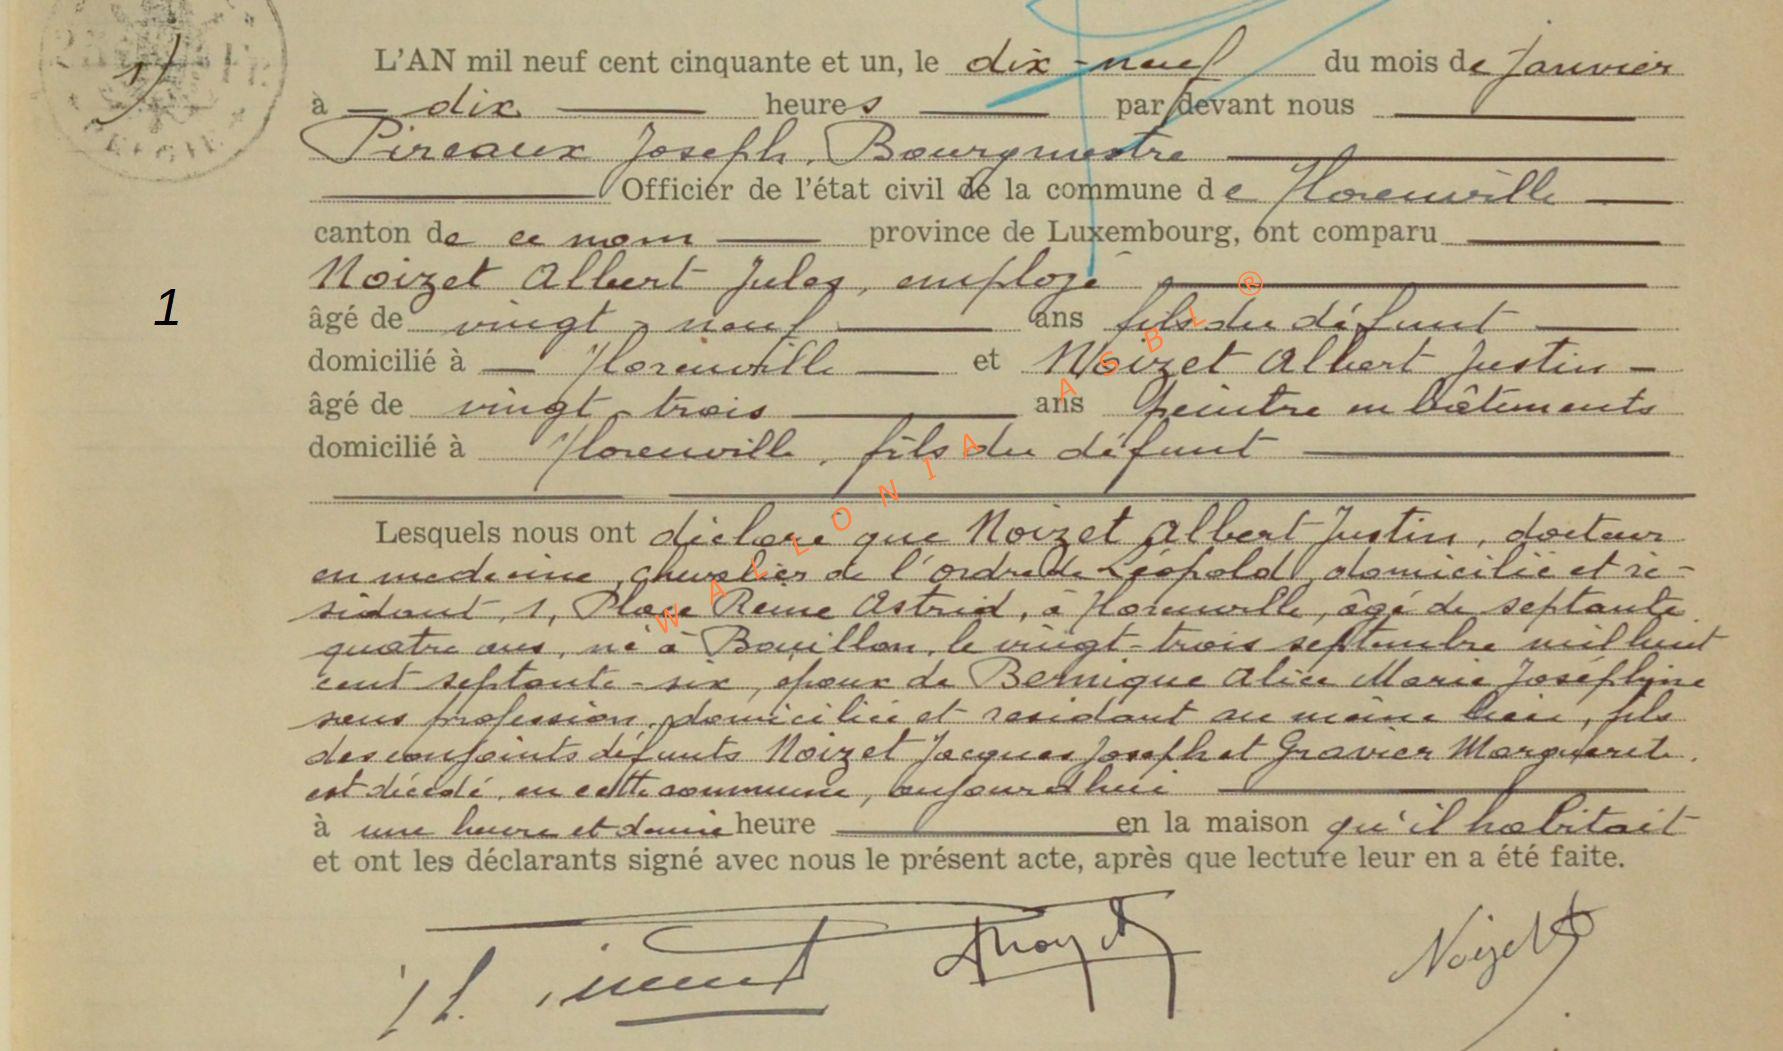 L'AN mil neuf cent cinquante et un, le dix-neuf du mois de Janvier
à dix heures par devant nous
Pireaux Joseph, Bourgmestre
Officier de l'état civil de la commune de Florenville
canton de ce nom province de Luxembourg, ont comparu
Noizet Albert Jules, employé
âgé de vingt-neuf ans fils du défunt
1
domicilié à Florenville et Noizet Albert Justin
âgé de vingt-trois ans peintre en bâtiments
domicilié à Florenville, fils du défunt
Lesquels nous ont déclaré que Noizet Albert Justin, docteur
en medecine, chevalier de l'ordre de Léopold, domicilié et ré-
sidant, 1, Place Reine Astrid, à Florenville, âgé de septante
quatre ans, né à Bouillon, le vingt-trois septembre mil huit
cent septante-six, epoux de Alice Marie Joséphine
sans profession, domiciliée et residant au même lieu, fils
des conjoints défunts Noizet Jacques Joseph et Gravier Marguerite.
est décédé, en cette commune, aujourd'hui
à une heure et demie heure en la maison qu'il habitait
et ont les déclarants signé avec nous le présent acte, après que lecture leur en a été faite.
Noizet
WALLONIA ASBL ®